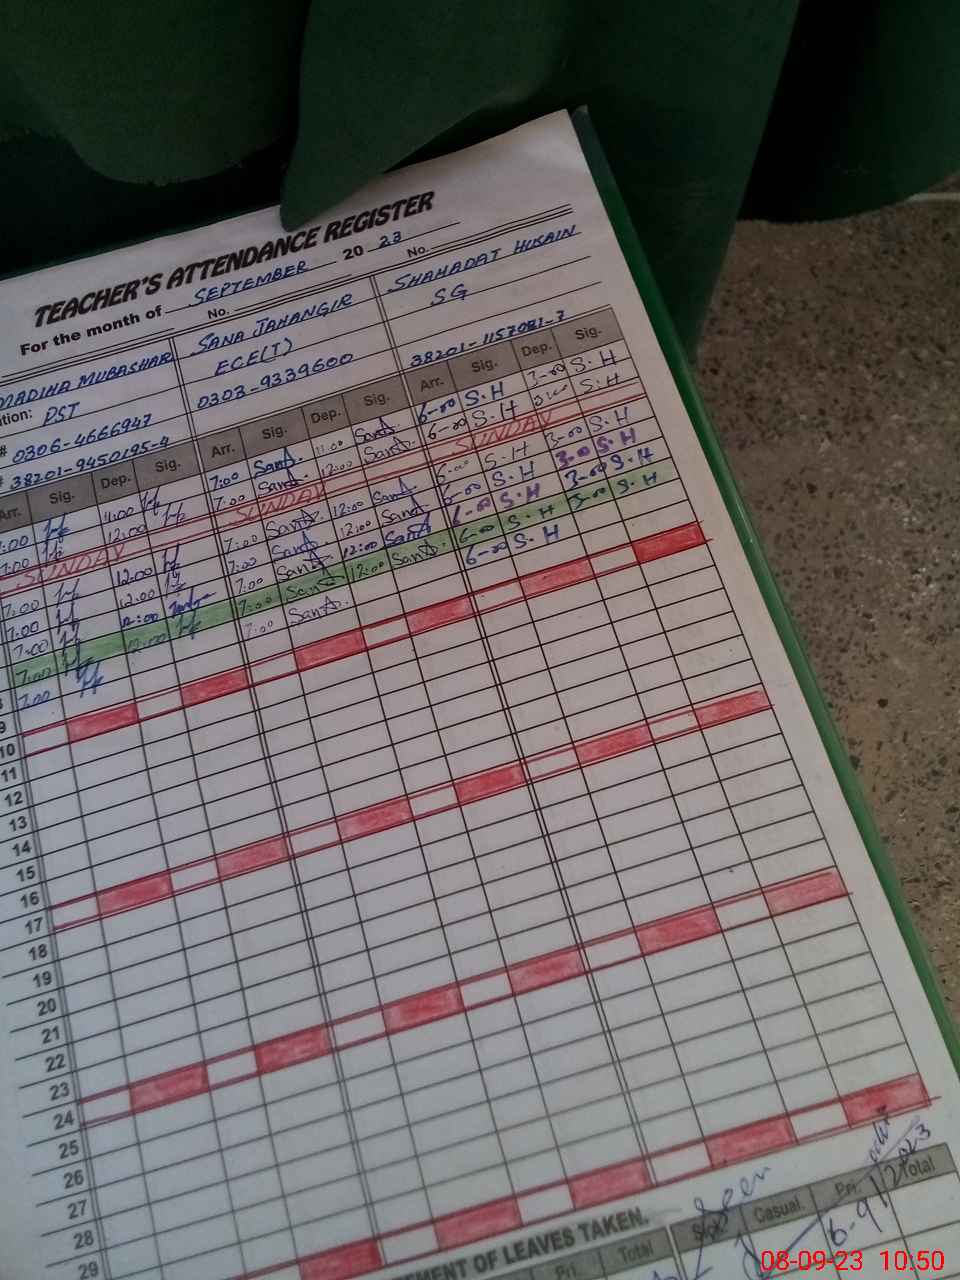 TEACHER'S ATTENDANCE REGISTER
For the month of SEPTEMBER 20 23
No. No.
MADIHA MUBASHAR SANA JAHANGIR SHAHADAT HUSAIN
tion: PST ECE(T) SG
# 0306-4666947 0303-9339600 38201-1157081-7
# 38201-9450195-4
Arr. Sig. Dep. Sig. Arr. Sig. Dep. Sig. Arr. Sig. Dep. Sig.
7:00 11:00 7:00 Sana 11:00 Sana 6-00 S.H 3-00 S.H
7:00 12:00 7:00 Sana 12:00 Sana 6-00 S.H 3-00 S.H
SUNDAY SUNDAY SUNDAY
7:00 12:00 7:00 Sana 12:00 Sana 6-00 S.H 3-00 S.H
7:00 12:00 7:00 Sana 12:00 Sana 6-00 S.H 3-00 S.H
7:00 12:00 7:00 Sana 12:00 Sana 6-00 S.H 3-00 S.H
7:00 12:00 7:00 Sana 12:00 Sana 6-00 S.H 3-00 S.H
7:00 7:00 Sana 6-00 S.H
9
10
11
12
13
14
15
16
17
18
19
20
21
22
23
24
25
26
27
28
29
Seen
EMENT OF LEAVES TAKEN.
Total Sick Casual Pri. Total
08-09-23 10:50